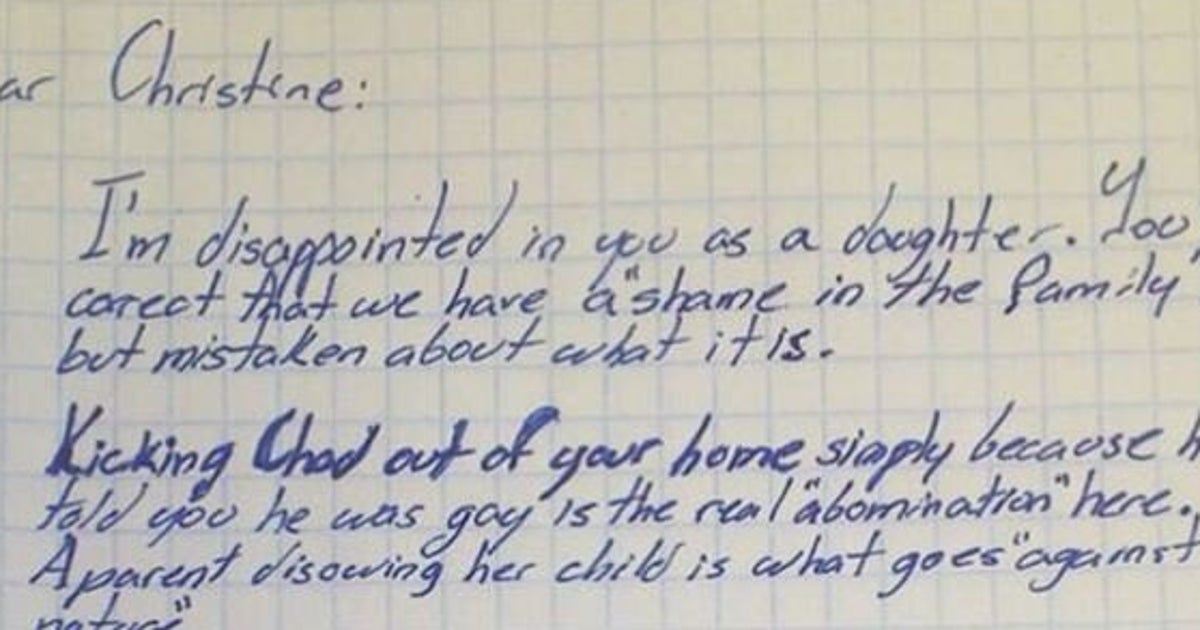 ar Christine:
I'm disappointed in you as a daughter. You
corect that we have a "shame in the family"
but mistaken about what it is.
Kicking Chad out of your home simply because h
told you he was gay is the real "abomination" here.
A parent disowing her child is what goes "against
nature"